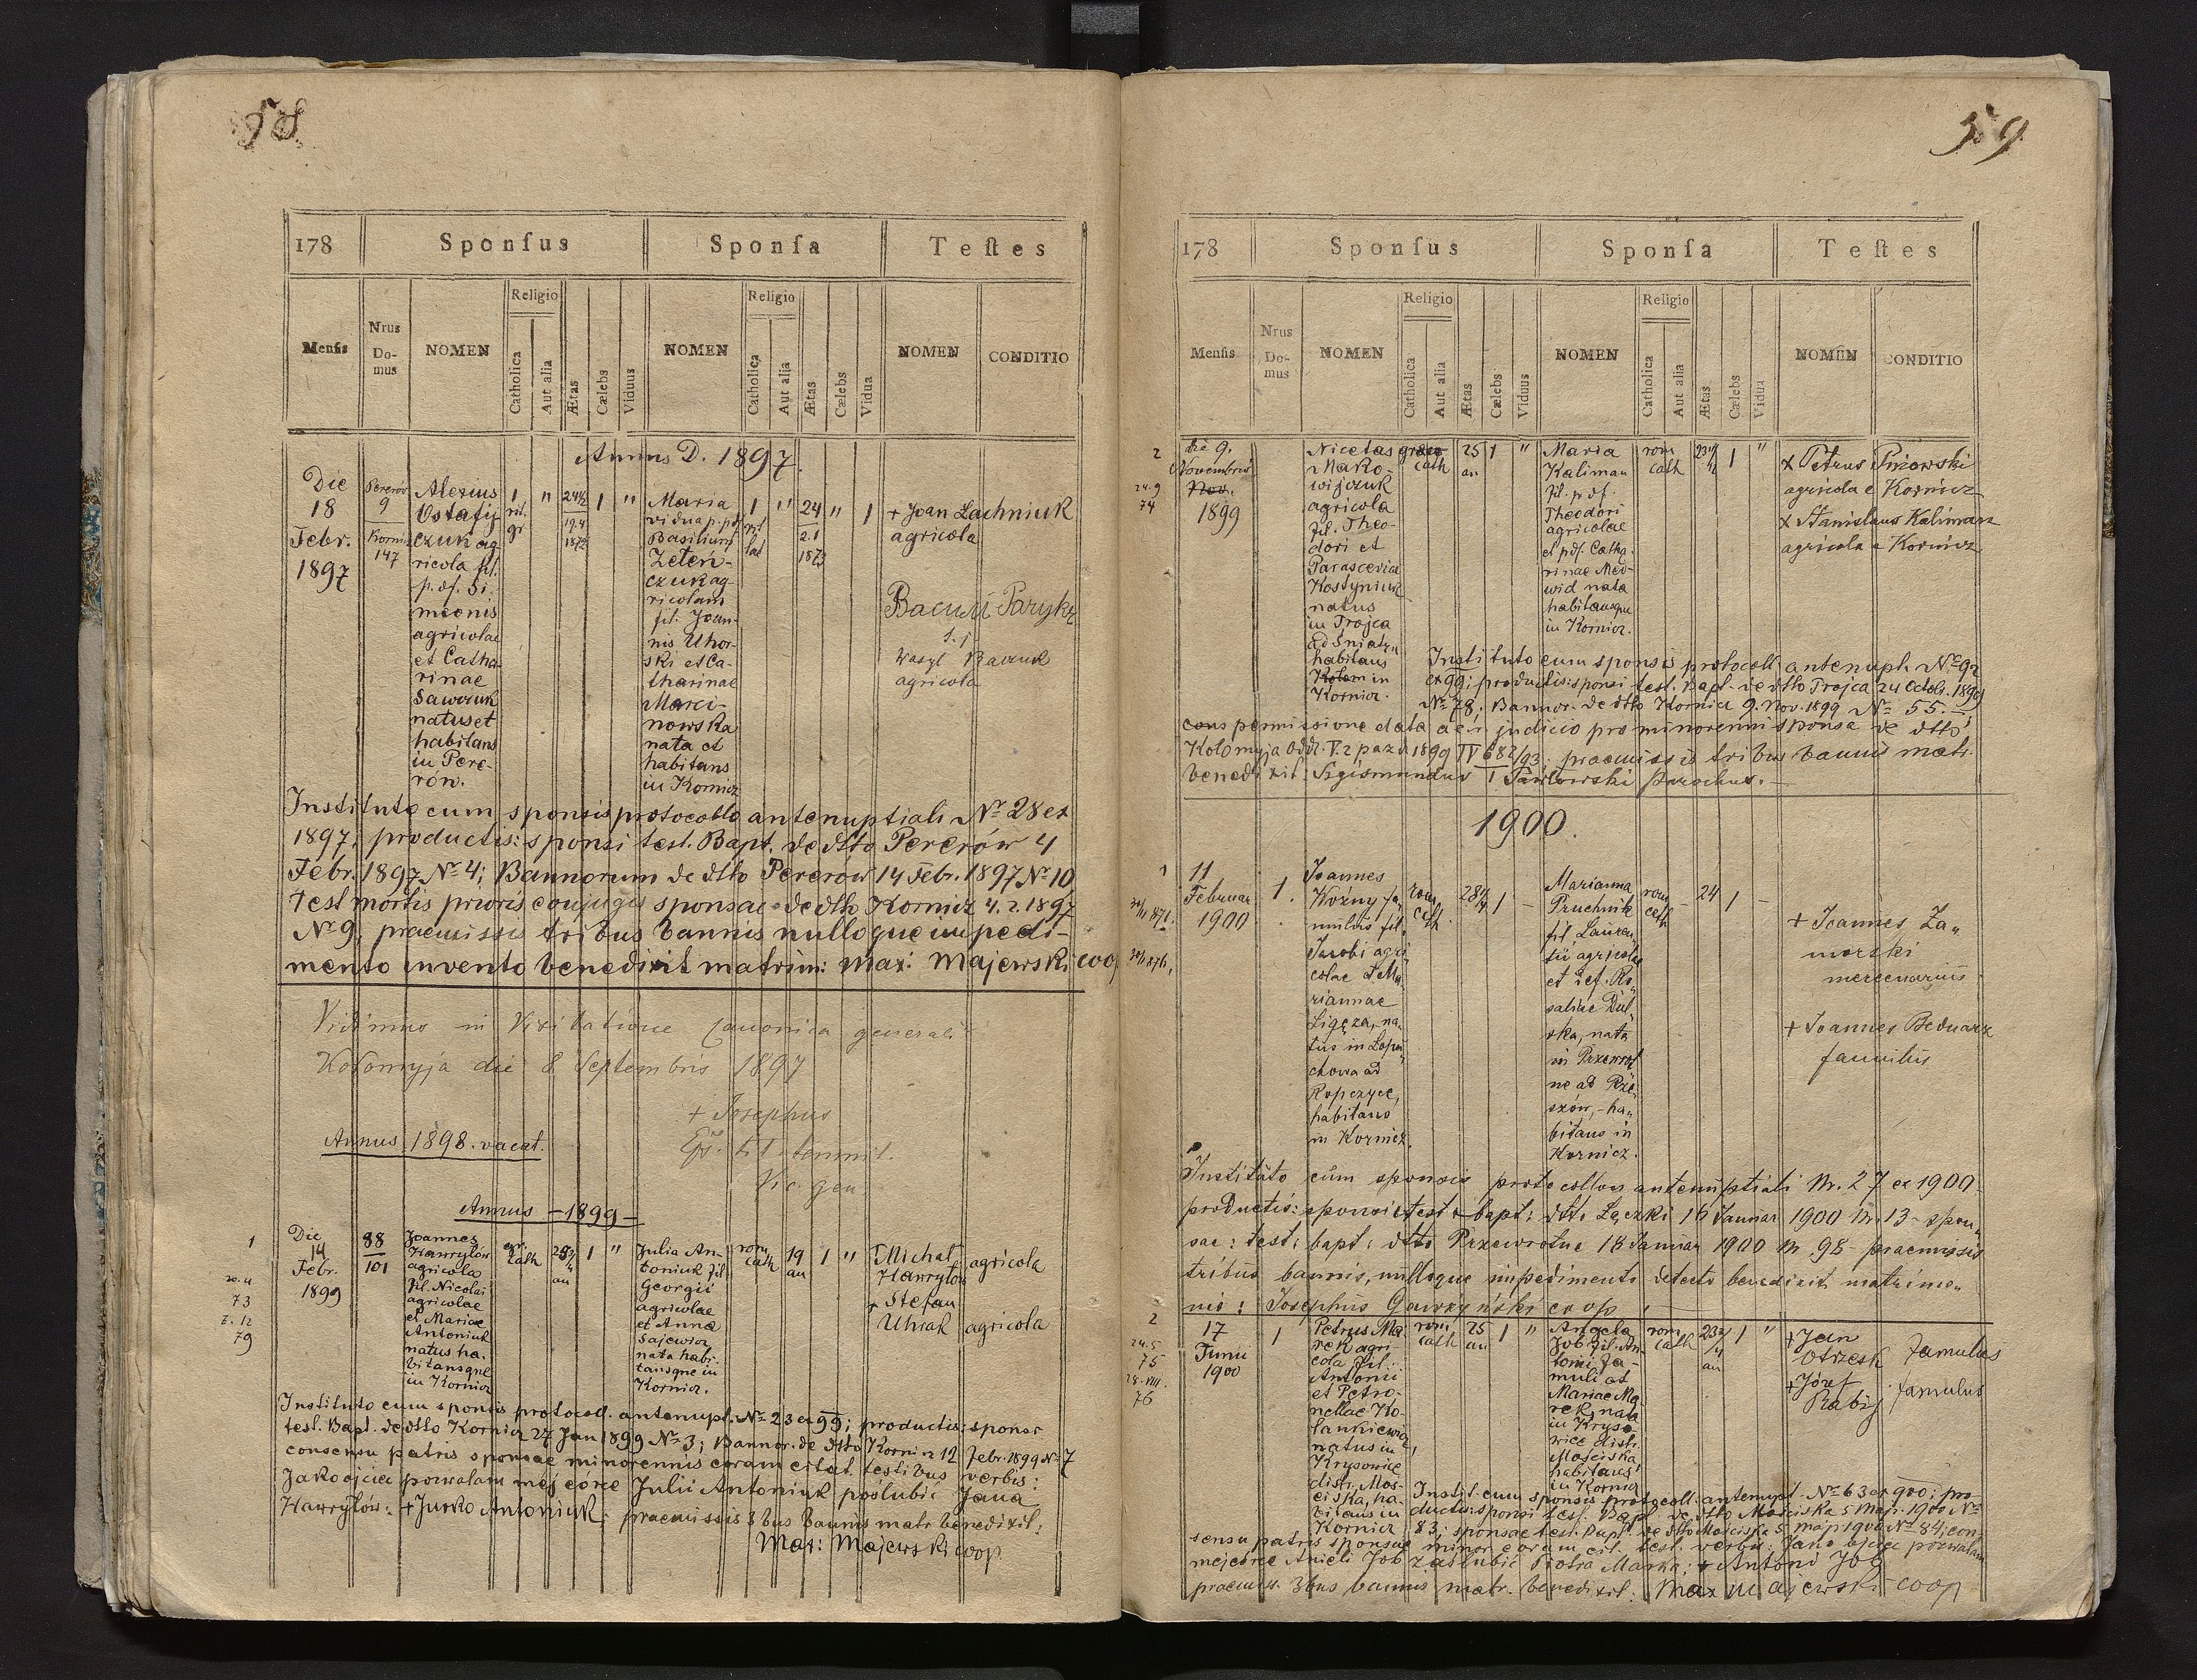 58.
178 Sponsus Sponsa Testes
Mensis Nrus Domus NOMEN Religio Catholica Aut alia Ætas Cælebs Viduus NOMEN Religio Catholica Aut alia Ætas Cælebs Vidua NOMEN CONDITIO
Annus D. 1897.
Die
18
Febr.
1897
Pererów
9
Kornicz
147
Alexius
Ostafij
czuk ag
ricola fil.
p. df. Si-
meonis
agricolae
et Catha-
rinae
Sawczuk
natus et
habitans
in Pere-
rów.
1
rit.
gr
"
24 1/2
19.4
1872
1
"
Maria
vidua p. pdf
Basilium
Zeleń-
czuk ag-
ricolam
fil. Joan-
nis Uhor-
ski et Ca-
tharinae
Marci-
nowska
nata et
habitans
in Kornicz
1
rit
lat
"
24
2.1
1873
"
1
+ Joan Lachniuk
agricola
Wasyl Baczuk
agricola
Instituto cum sponsis protocollo antenuptiali Nr 28 ex
1897, productis: sponsi test. Bapt. de dtto Pererów 4
Febr. 1897 Nr 4; Bannorum de dtto Pererów 14 Febr. 1897 Nr 10
Test mortis prioris conjugis sponsae de dtto Kornicz 4. 2. 1897
Nr 9, praemissis tribus bannis nulloque impedi-
mento invento benedixit matrim: Max: Majewski coop
Vidimus in Visitatione canonica generali
Kołomyja die 8 Septembris 1897
+ Josephus
Vic. gen
Annus 1898. vacat.
Annus - 1899 -
1
20. 4
73
7. 12
79
Die
14
Febr.
1899
88
101
Joannes
Hawryłów
agricola
fil. Nicolai
agricolae
et Mariae
Antoniuk
natus ha-
bitansque
in Kornicz
gr.
cath
25 3/4
au
1
"
Julia An-
toniuk fil.
Georgii
agricolae
et Anna
Sajewicz
nata habi-
tansque in
Kornicz.
rom
cath
19
an
1
"
+ Michał
Hawryłów
agricola
+ Stefan
Uhrak
agricola
Instituto cum sponsis protocoll. antenupt. Nr 23 ex 99; productis: sponsor
test. Bapt. de dtto Kornicz 27 Jan 1899 Nr 3; Bannor. de dtto Kornicz 12 Febr. 1899 Nr 7
consensu patris sponsae minorennis coram citat. testibus verbis:
Jako ojciec pozwalam mej córce Julii Antoniuk poślubić Jana
Hawryłów: + Jurko Antoniuk; praemissis 3bus bannis matr benedixit:
Max: Majewski coop
59
178 Sponsus Sponsa Testes
Mensis Nrus Domus NOMEN Religio Catholica Aut alia Ætas Cælebs Viduus NOMEN Religio Catholica Aut alia Ætas Cælebs Vidua NOMEN CONDITIO
2
24.9
74
die 9.
Novembris
Nov.
1899
Nicetas
Mako-
wijczuk
agricola
fil. Theo-
dori et
Parasceviae
Kostyniuk
natus
in Trojca
ad Śniatyn
habitans
Kołom in
Kornicz.
graeco
cath
25
an
1
"
Maria
Kaliman
fil. p. df.
Theodori
agricolae
et pdf. Catha-
rinae Med-
wid nata
habitansque
in Kornicz.
rom
cath
1
"
x Petrus Pniowski
agricola e Kornicz
x Stanislaus Kaliman
agricola e Kornicz
Instituto cum sponsis protocoll. antenupt. Nr 92
ex 99; productis: sponsi test. Bapt. de dtto Trojca 24 Octob. 1899
Nr 78; Bannor. de dtto Kornicz 9. Nov. 1899 Nr 55.
cons permissione data a c. r. judicio pro minorenni sponsa de dtto
Kołomyja Oddz. V. 2 paźd 1899 IV 682/93; praemissis tribus bannis matr.
benedixit: Sigismundus Pawłowski parochus. -
1900.
1
11
Februar
1900
1.
Joannes
Woźny fa-
mulus fil.
Jacobi agri
colae et Ma-
riannae
Ligęza, na-
tus in Łopu-
chowa ad
Ropczyce,
habitans
in Kornicz.
rom.
cath.
28 1/4
1
-
Marianna
Pruchnik
fil Lauren-
tii agricolae
et def. Ro-
saliae Dul-
ska, nata
in Przewrot
ne ad Rze-
szów, - ha-
bitans in
Kornicz.
rom
cath
-
24
1
-
+ Joannes Za-
morski
mercenarius
+ Joannes Bednarz
famulus
Instituto cum sponsis protocollon antenuptiali Nr. 27 ex 1900
productis: sponsi test. bapt: dtto Łączki 16 Januar 1900 Nr. 13 - spon-
sae: test: bapt: dtto Przewrotne 18 Januar 1900 Nr 98 - praemissis
tribus bannis, nulloque impedimento detecto benedixit matrimo-
nio: Josephus Gawrzyński coop.
2
24.5
75
28. VIII.
76
17
Junii
1900
1
Petrus Ma
rek agri
cola fil.
Antonii
et Petro-
nellae Ko-
lankiewicz
natus in
Krysowice
distr. Mos-
ciska, ha-
bitans in
Kornicz
rom
cath
25
an
1
"
Angela
Job fil. An-
toni fa-
muli et
Mariae Ma-
rek, nata
in Kryso-
wice distr.
Mościska
habitans
in Kornicz
rom
cath
23 3/4
an
1
"
+ Jan
Otrzesk famulus
+ Józef
Rabij famulus
Instit. cum sponsis protocoll. antenupt. Nr 63 ex 900; pro-
ductis: sponsi test. Bapt. de dtto Mościska 5 Maji 1900 Nr
83; sponsae test. Bapt. de dtto Mościska 5 maji 1900 Nr 84; con-
sensu patris sponsae minor coram cit. test. verbis: Jako ojciec pozwalam
mej córce Anieli Job zaślubić Piotra Marka; + Antoni Job
praemiss. 3bus bannis matr. benedixit: Max Majewski coop